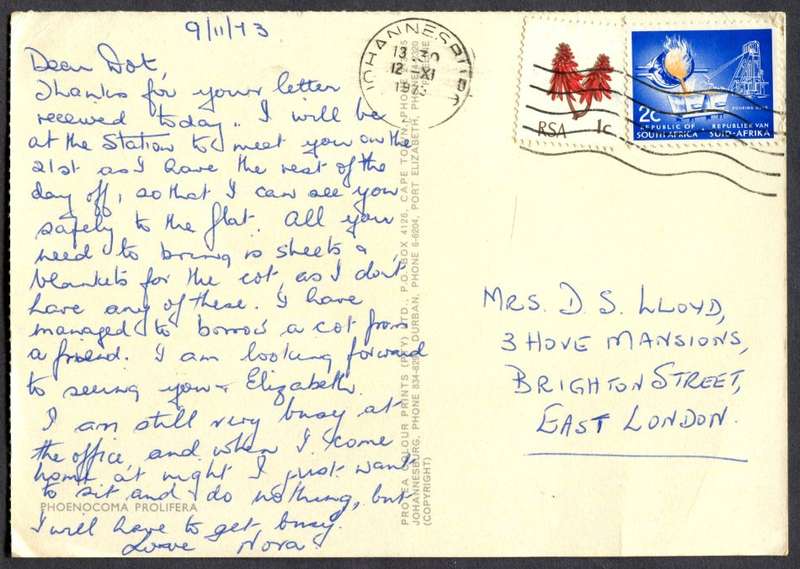 9/11/73
Dear Dot,
Thanks for your letter
received today. I will be
at the Station to meet you on the
21st as I have the rest of the
day off, so that I can see you
safely to the flat. All you
need to bring is sheets &
blankets for the cot, as I don't
have any of these. I have
managed to borrow a cot from
a friend. I am looking forward
to seeing you & Elizabeth.
I am still very busy at
the office and when I come
home at night I just want
to sit and do nothing, but
I will have to get busy.
Love Nora
PHOENOCOMA PROLIFERA
PROTEA COLOUR PRINTS (PTY) LTD., P.O. BOX 4126, CAPE TOWN, PHONE
JOHANNESBURG, PHONE 834- DURBAN, PHONE 6-6204, PORT ELIZABETH, PHONE
(COPYRIGHT)
JOHANNESBURG
13 30
12 XI
1973
RSA 1c
2c
REPUBLIC OF SOUTH AFRICA
REPUBLIEK VAN SUID-AFRIKA
MRS. D. S. LLOYD,
3 HOVE MANSIONS,
BRIGHTON STREET,
EAST LONDON.